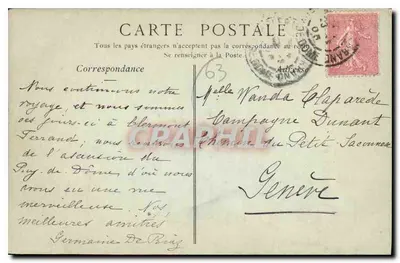 CARTE POSTALE
Tous les pays étrangers n'acceptent pas la correspondance au
Se renseigner à la Poste
Correspondance
63
Nous continuons notre
voyage, et nous sommes
ces jours-ci à Clermont
Ferrand; nous
de l'ascension du
Puy-de-Dôme d'où nous
avons eu une vue
merveilleuse. Nos
meilleures amitiés
Germaine De
Melle Wanda Claparède
Campagne Dunant
Chemin du Petit Saconnex
Genève